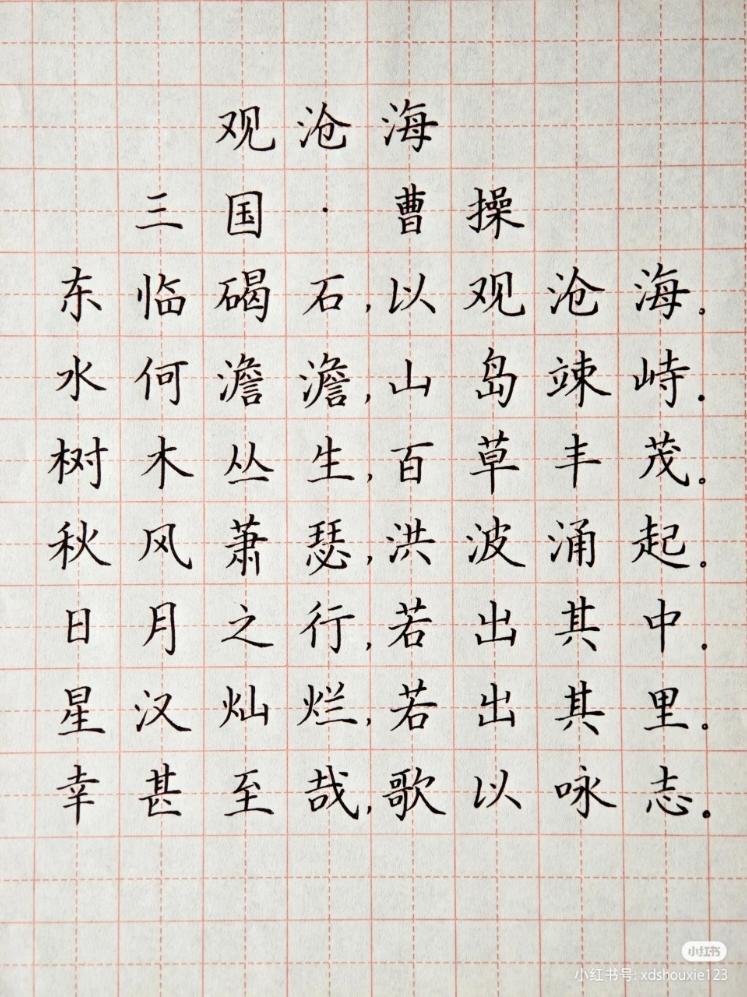 观沧海
三国·曹操
东临碣石,以观沧海。
水何澹澹,山岛竦峙.
树木丛生,百草丰茂。
秋风萧瑟,洪波涌起。
日月之行,若出其中.
星汉灿烂,若出其里.
幸甚至哉,歌以咏志。
小红书
小红书号: xdshouxie123